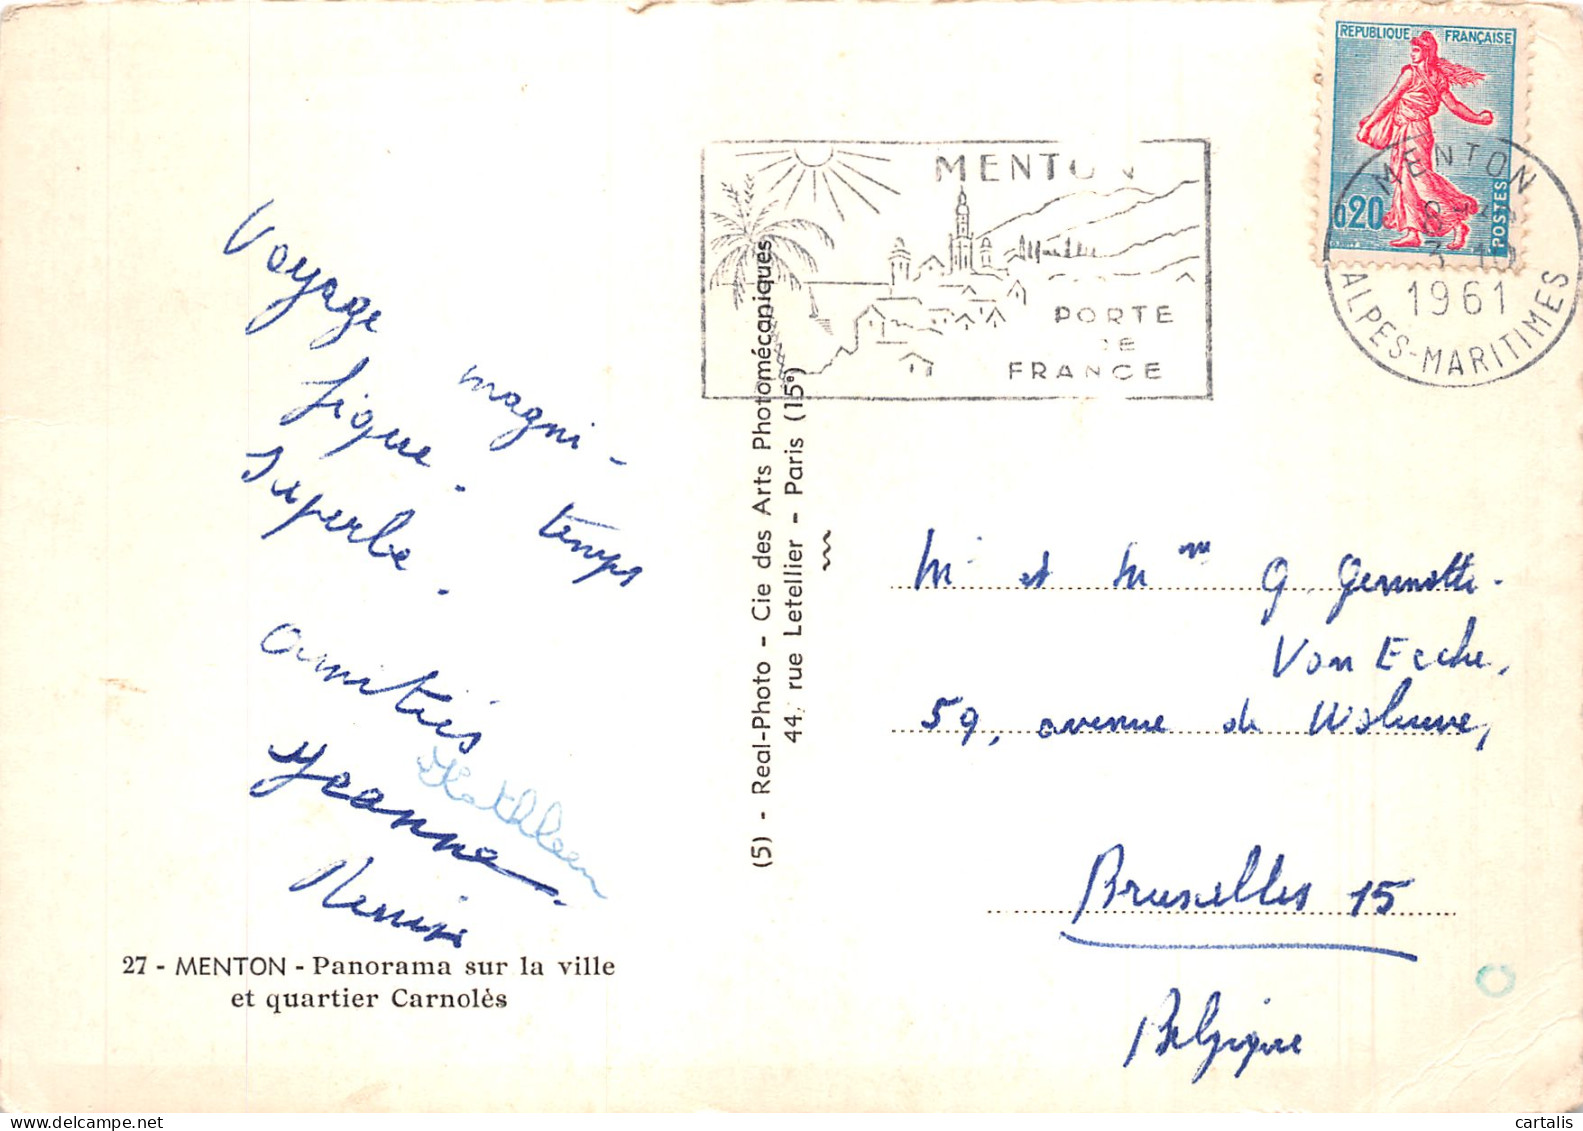 REPUBLIQUE FRANÇAISE
0,20
POSTES
MENTON
PORTE
DE
FRANCE
MENTON
3-10
1961
ALPES-MARITIMES
Voyage magni-
fique - temps
superbe -
amitiés
Jeanne
Kathleen
27 - MENTON - Panorama sur la ville
et quartier Carnolès
(5) - Real-Photo - Cie des Arts Photomécaniques
44, rue Letellier - Paris (15e)
Mr et Mme G. Germotte-
Van Ecche,
59, avenue de Woluwe,
Bruxelles 15
Belgique
cartalis